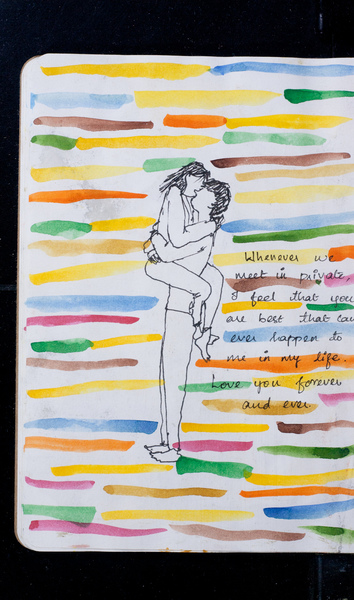 Whenever we
meet in private,
I feel that you
are best that can
ever happen to
me in my life.
Love you forever
and ever.